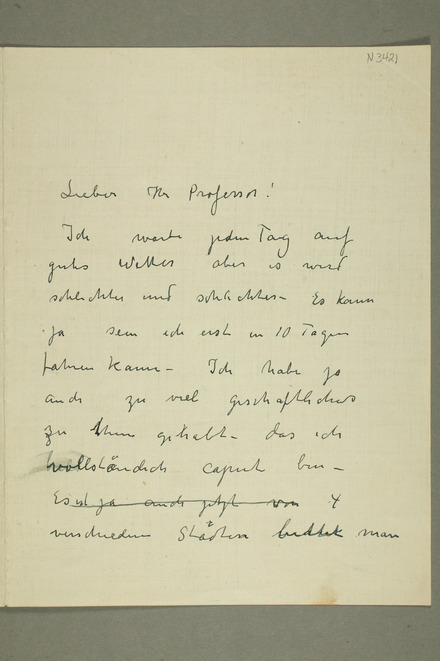 N 3421
Lieber Hr Professor!
Ich warte jeden Tag auf
gutes Wetter aber es wird
schlechter und schlechter - Es kann
ja sein ich erst in 10 Tagen
fahren kann - Ich habe ja
auch zu viel geschäftliches
zu thun gehabt - das ich
vollständich caput bin -
Es ist ja auch jetzt von 4
verschiedene Städten man